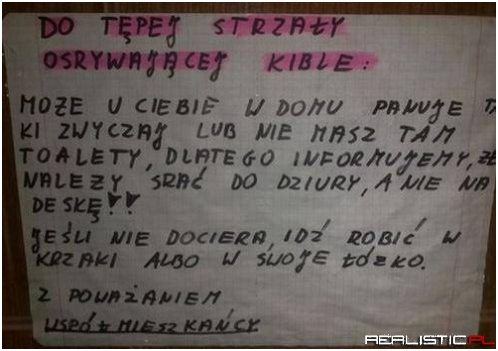 DO TĘPEJ STRZAŁY
OSRYWAJĄCEJ KIBLE:
MOŻE U CIEBIE W DOMU PANUJE TA
KI ZWYCZAJ LUB NIE MASZ TAM
TOALETY, DLATEGO INFORMUJEMY, ŻE
NALEŻY SRAĆ DO DZIURY, A NIE NA
DESKĘ!!
JEŚLI NIE DOCIERA, IDŹ ROBIĆ W
KRZAKI ALBO W SWOJE ŁÓŻKO.
Z POWAŻANIEM
WSPÓŁMIESZKAŃCY
REALISTIC.PL